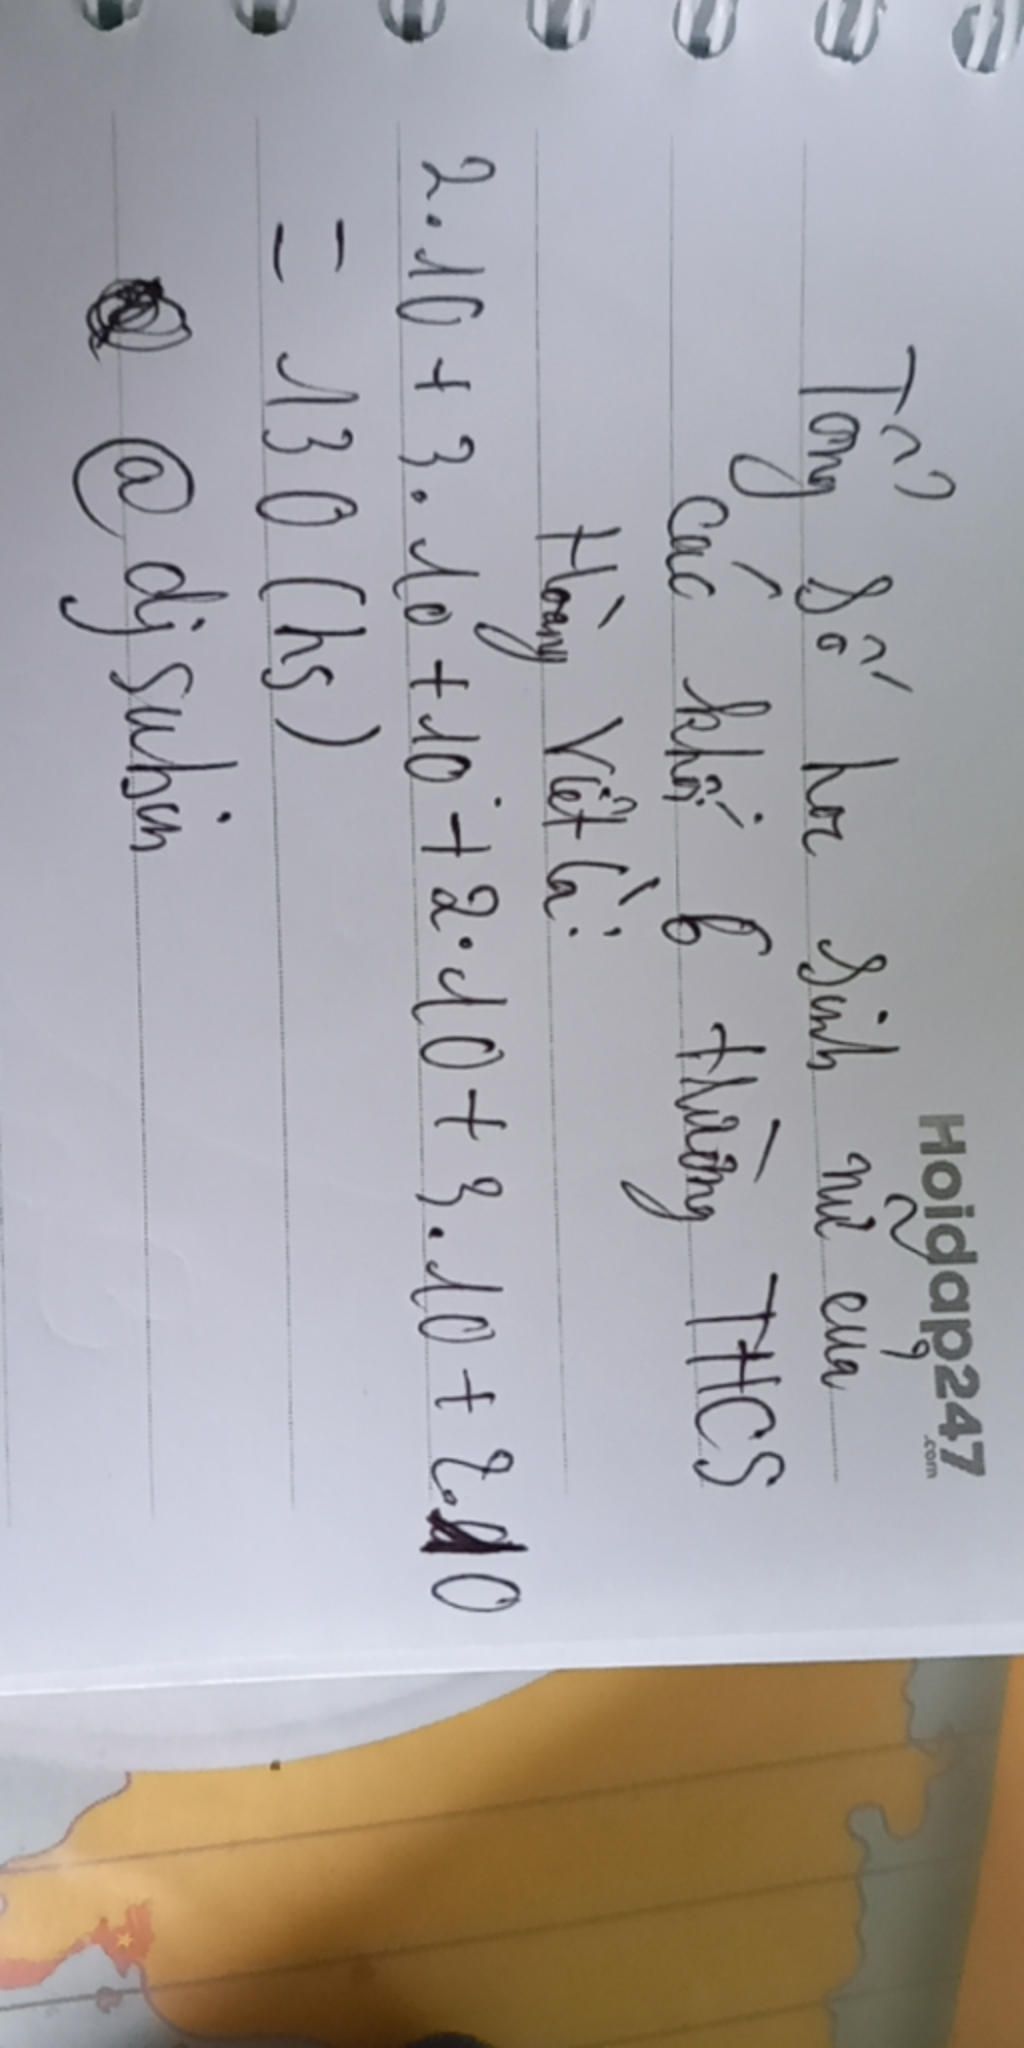 Hoidap247
.com
Tổng số học sinh nữ của
các khối 6 trường THCS
Hoàng Việt là:
2.10 + 3.10 + 10 + 2.10 + 3.10 + 2.10
= 130 (hs)
@djsubin